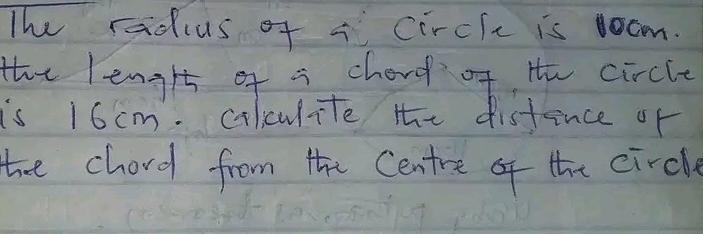 The radius of a circle is 10cm.
the length of a chord of the circle
is 16cm. calculate the distance of
the chord from the Centre of the circle